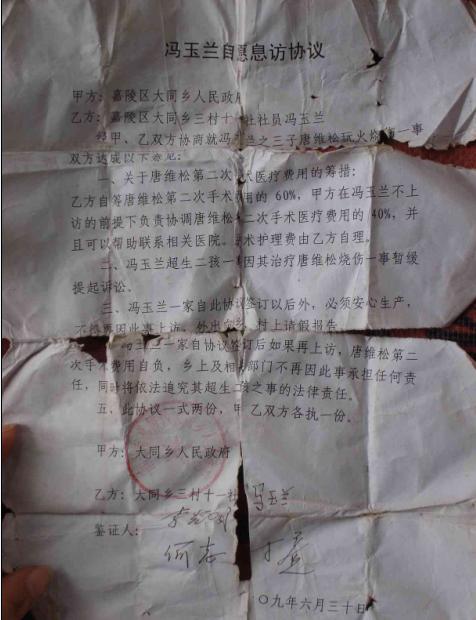 冯玉兰自愿息访协议
甲方：嘉陵区大同乡人民政府
乙方：嘉陵区大同乡三村十一社社员冯玉兰
经甲、乙双方协商就冯玉兰之三子唐维松玩火烧伤一事
双方达成以下意见：
一、关于唐维松第二次手术医疗费用的筹措：
乙方自筹唐维松第二次手术费用的 60%，甲方在冯玉兰不上
访的前提下负责协调唐维松二次手术医疗费用的 40%，并
且可以帮助联系相关医院。手术护理费由乙方自理。
二、冯玉兰超生二孩一事因其治疗唐维松烧伤一事暂缓
提起诉讼。
三、冯玉兰一家自此协议签订以后外，必须安心生产，
不得再因此事上访，外出向乡、村上请假报告
冯玉兰一家自协议签订后如果再上访，唐维松第二
次手术费用自负，乡上及相关部门不再因此事承担任何责
任，同时将依法追究其超生二孩之事的法律责任。
五、此协议一式两份，甲乙双方各执一份。
甲方：大同乡人民政府
乙方：大同乡三村十一社 冯玉兰
鉴证人：
何
〇九年六月三十日